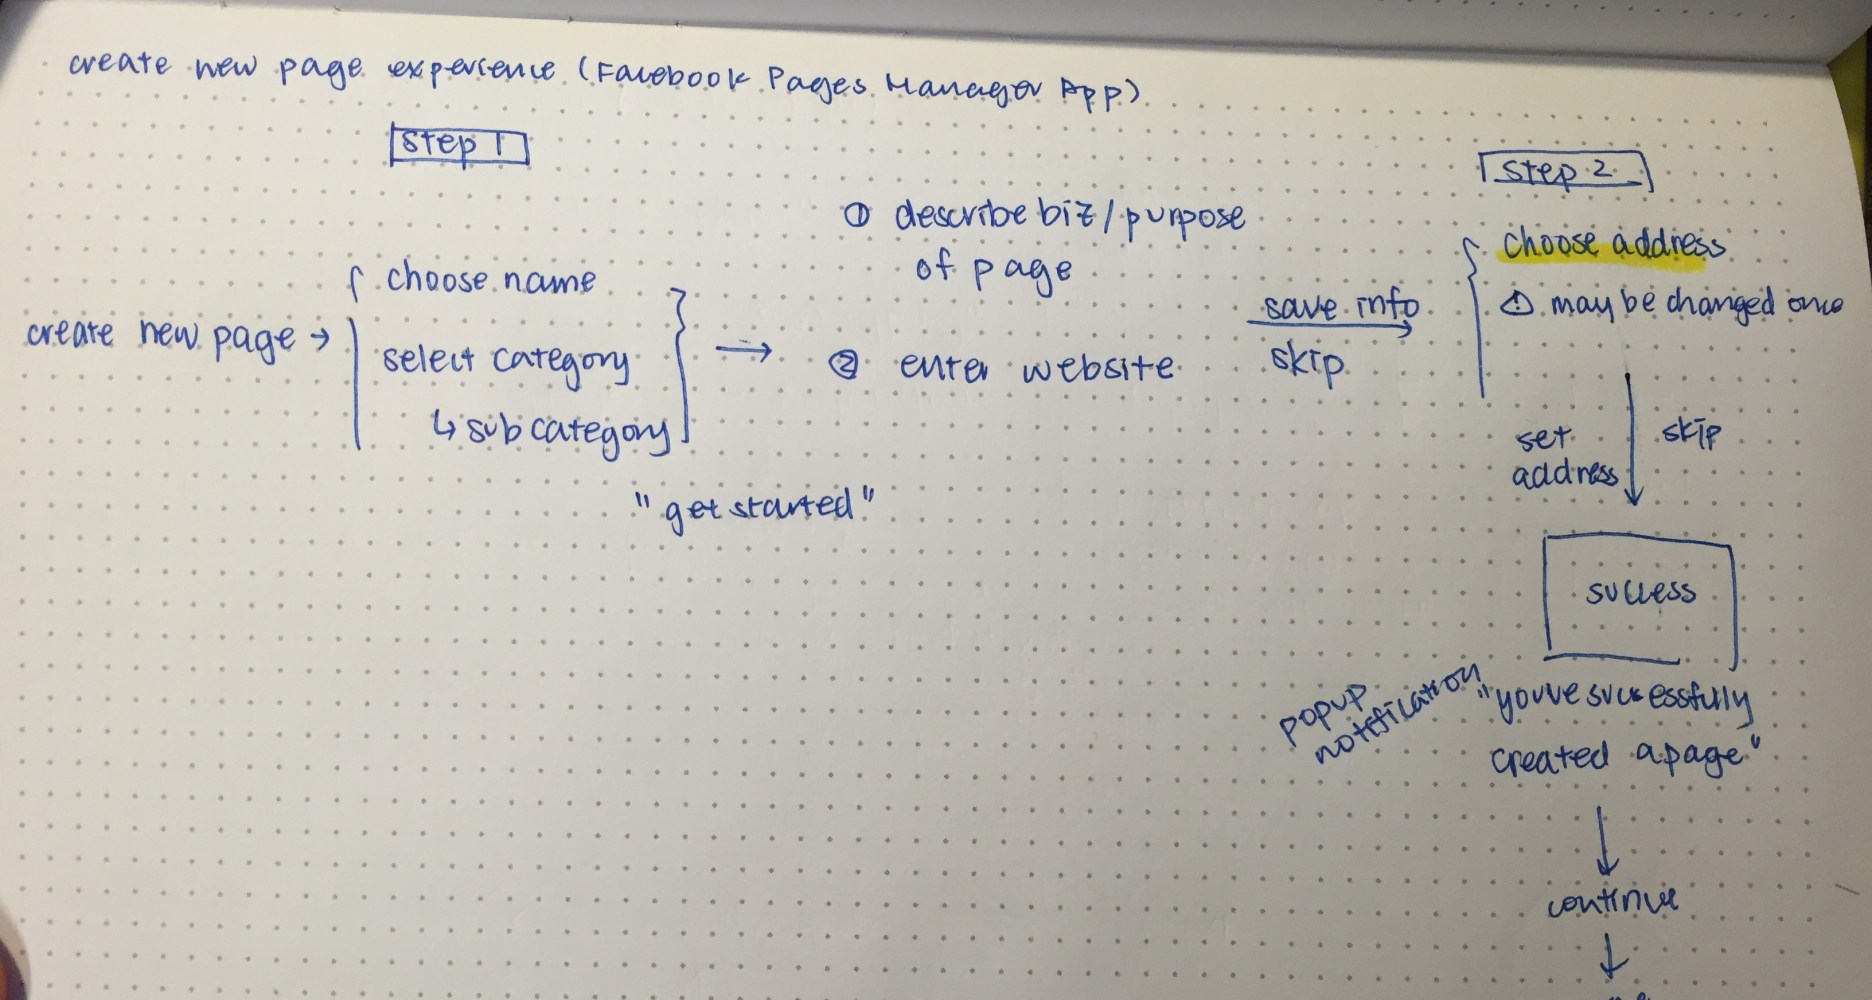 create new page experience (Facebook Pages Manager App)
Step 1
create new page →
choose name
select category
↳ sub category
"get started"
→
① describe biz/purpose
of page
② enter website
save info
skip
Step 2
choose address
⚠ may be changed once
set
address
skip
success
popup
notification "youve successfully
created a page"
continue